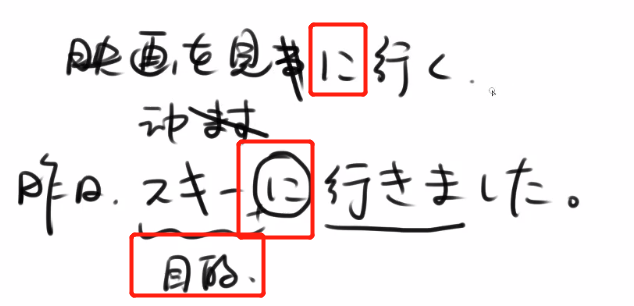 映画を見に行く.
动ます
昨日.スキーに行きました。
目的.